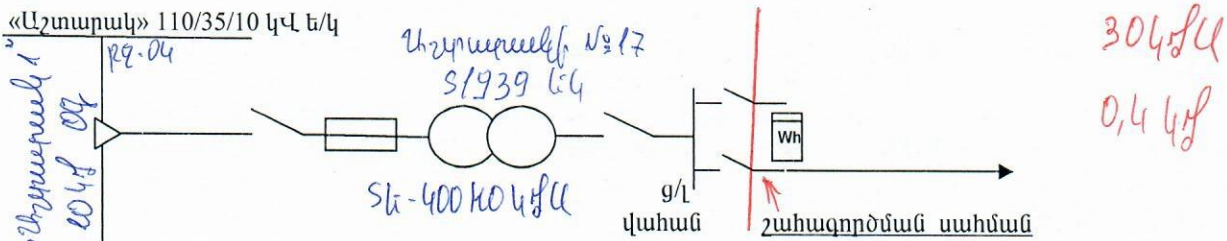 «Աշտարակ» 110/35/10 կՎ ե/կ
բջ-04
Աշտարակ 1"
10 կՎ ՕԳ
Աշտարակի №17
Տ/939 ԵԿ
ՏԵ-400 10 կՎԱ
Wh
ց/լ
վահան
շահագործման սահման
30 կՎԱ
0,4 կՎ